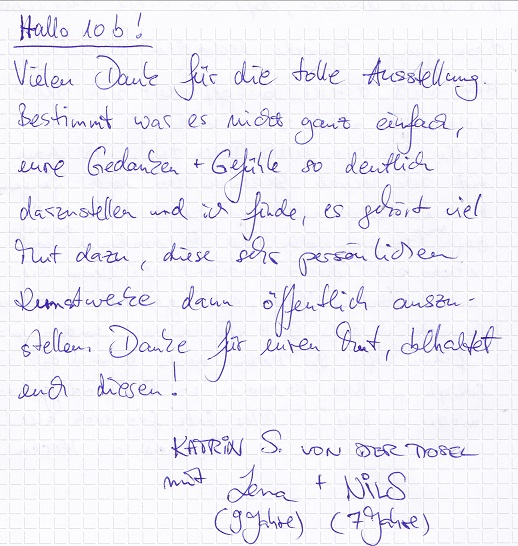 Hallo 10 b!
Vielen Dank für die tolle Ausstellung.
Bestimmt war es nicht ganz einfach,
eure Gedanken + Gefühle so deutlich
darzustellen und ich finde, es gehört viel
Mut dazu, diese sehr persönlichen
Kunstwerke dann öffentlich auszu-
stellen. Danke für euren Mut, behaltet
euch diesen!
KATRIN S. VON DER
mit Lena + NILS
(9 Jahre) (7 Jahre)